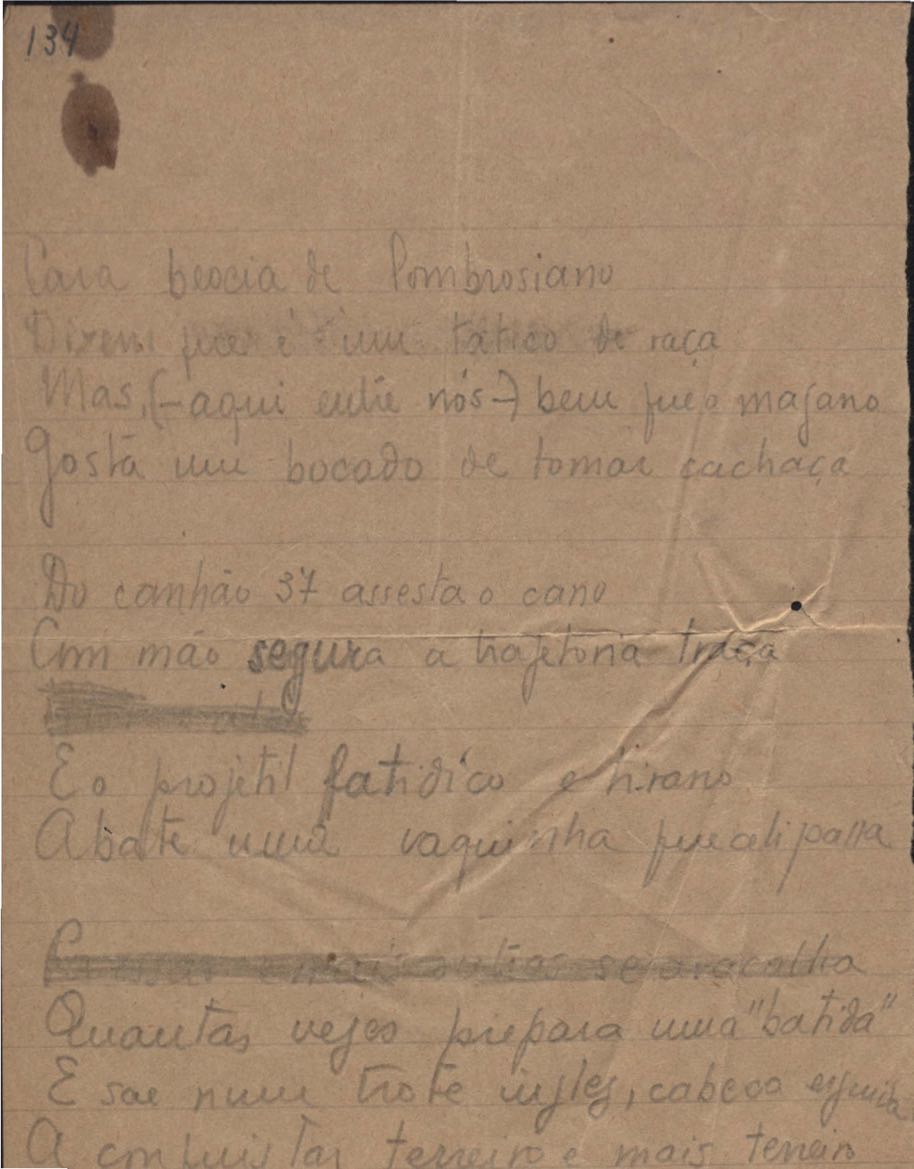 134
Cara beocia de Lombrosiano
Dizem que é um tático de raça
Mas, (-aqui entre nós-) bem que o magano
Gosta um bocado de tomar cachaça
Do canhão 37 assesta o cano
Com mão segura a trajetoria traça
E o projétil fatidico e tirano
Abate uma vaquinha que ali passa
mais outras se
Quantas vezes prepara uma "batida"
E sae num trote ingles, cabeça erguida
A conquistar terreiro e mais terreiro